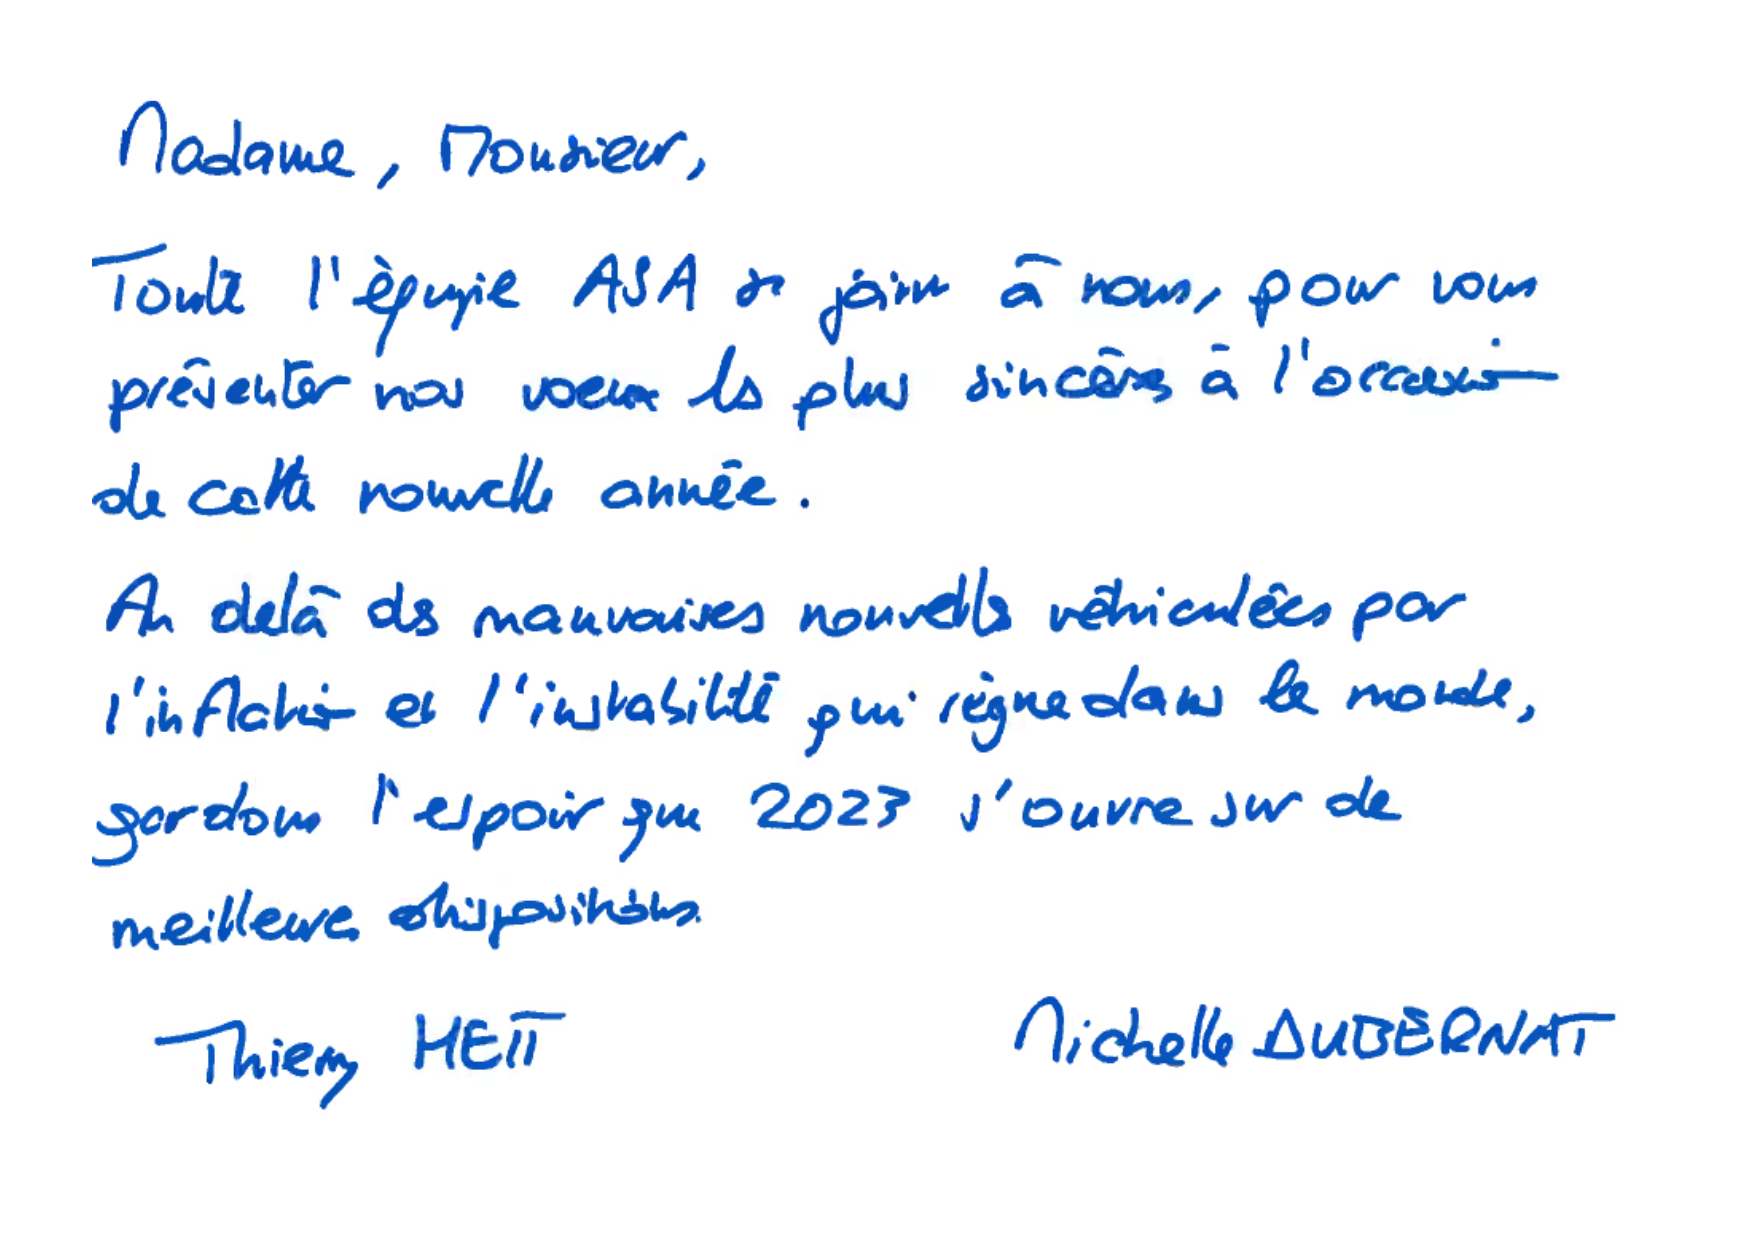 Madame, Monsieur,
Toute l'équipe ASA se joint à nous, pour vous
présenter nos voeux les plus sincères à l'occasion
de cette nouvelle année.
Au delà des mauvaises nouvelles véhiculées par
l'inflation et l'instabilité qui règne dans le monde,
gardons l'espoir que 2023 s'ouvre sur de
meilleures dispositions.
Thierry HETT
Michelle DUBERNAT